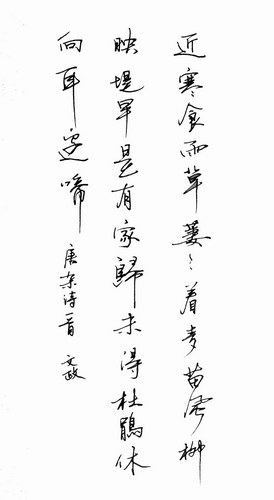 近寒食雨草萋〻着麦苗风柳
映堤早是有家归未得杜鹃休
向耳边啼 唐杂诗一首 文政